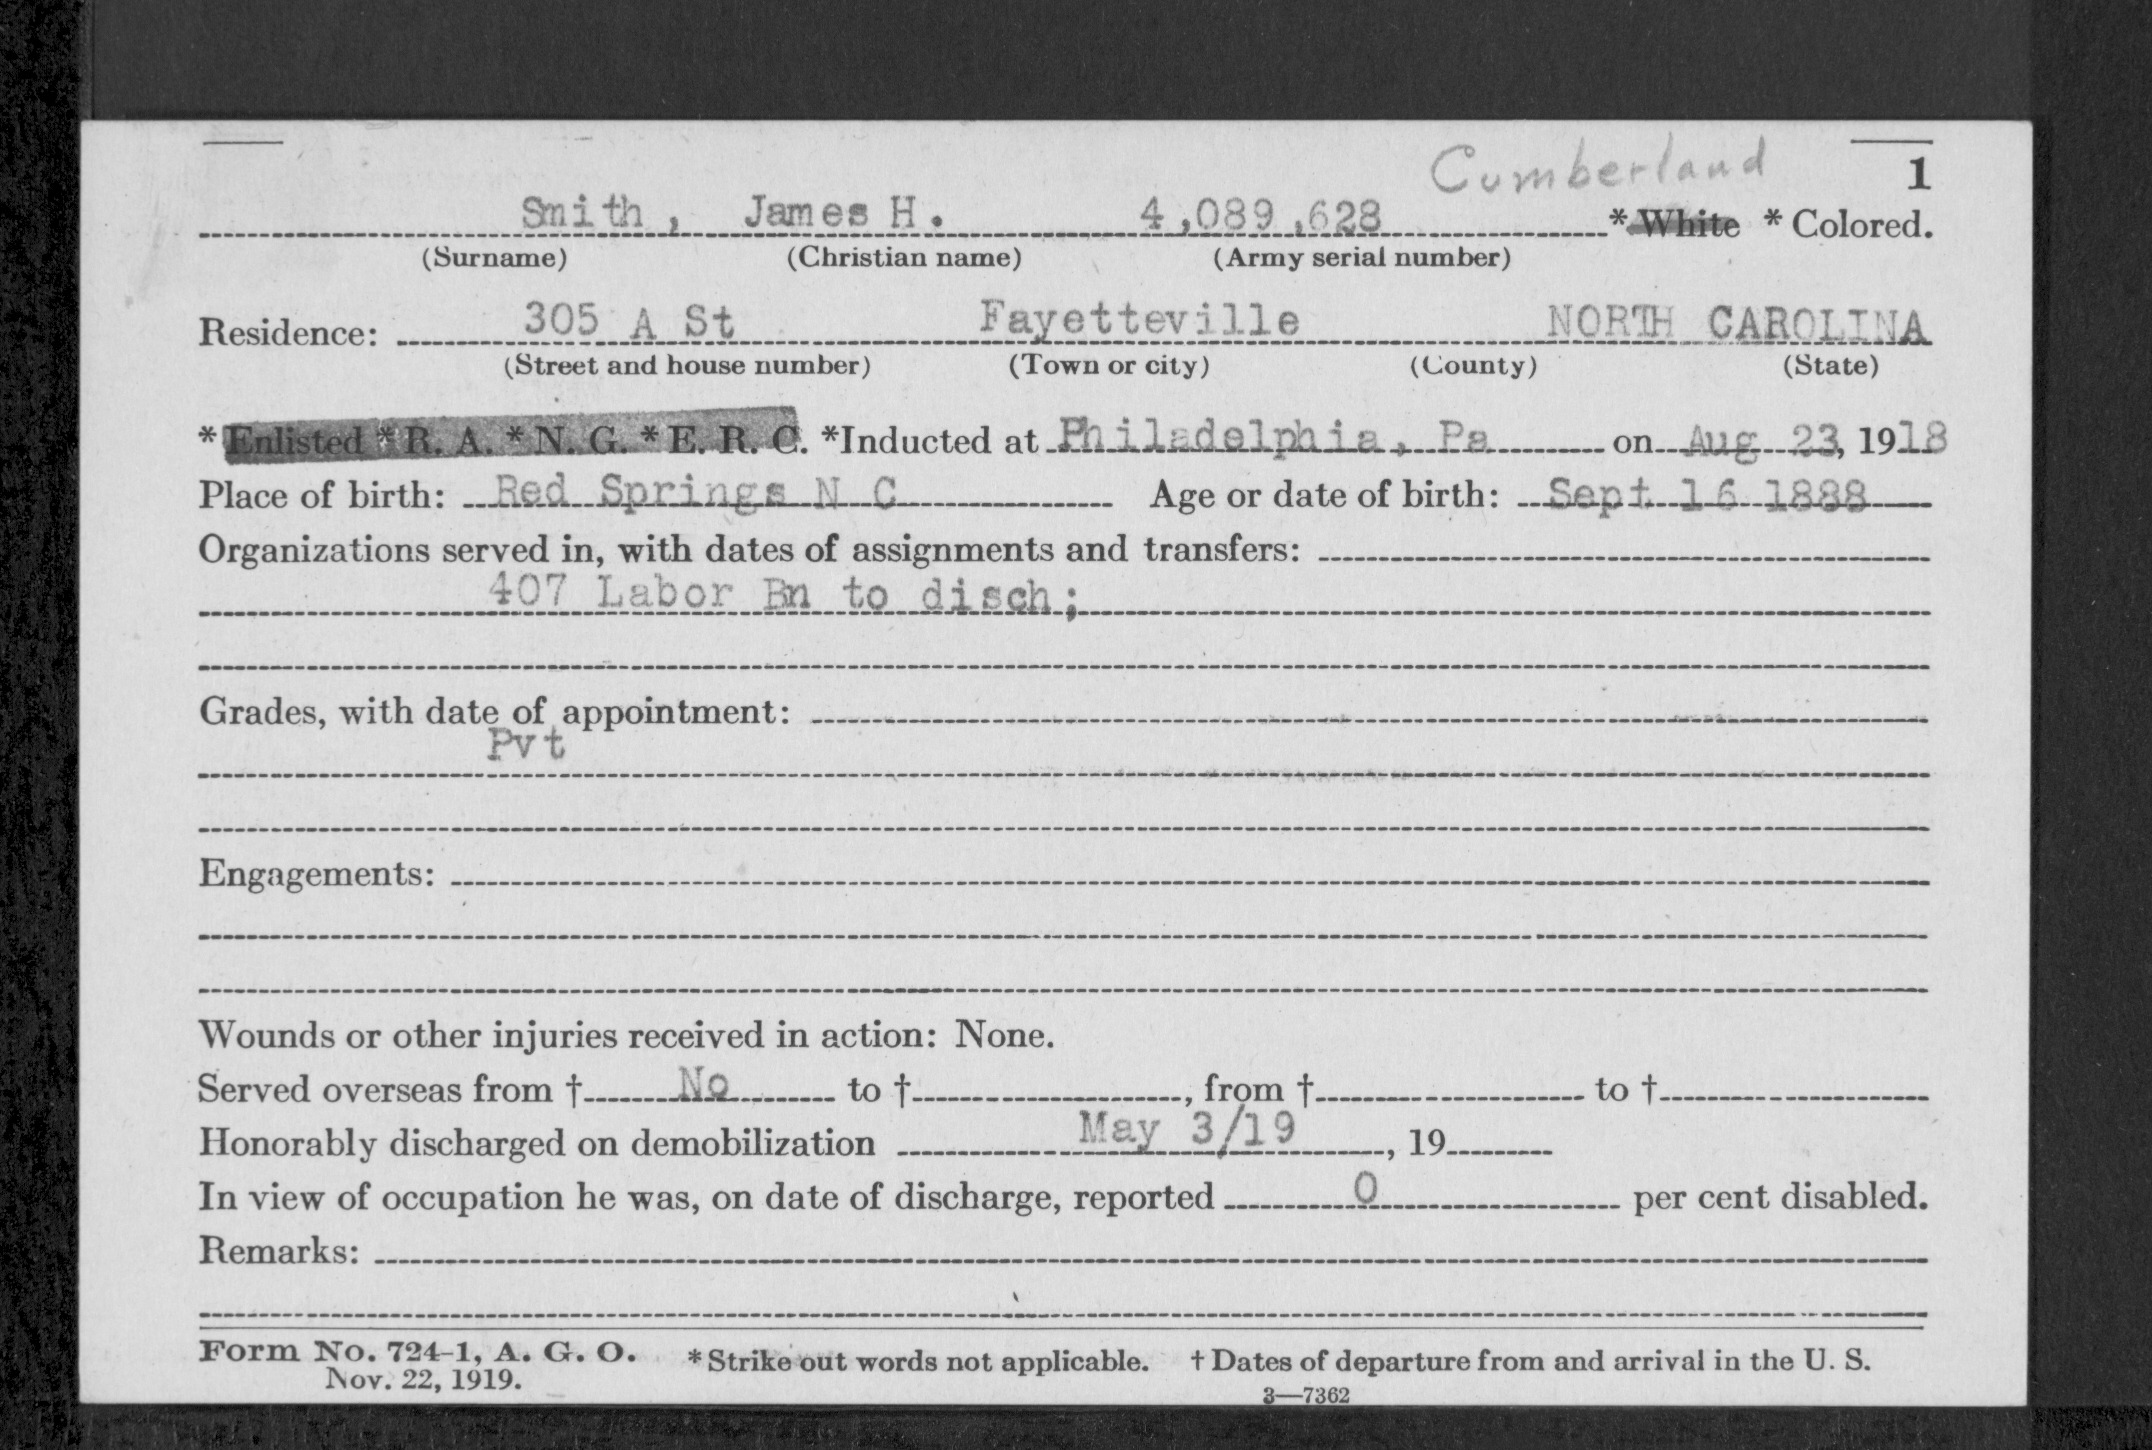 Cumberland
1
Smith, James H. 4,089,628 * White * Colored.
(Surname) (Christian name) (Army serial number)
Residence: 305 A St Fayetteville NORTH CAROLINA
(Street and house number) (Town or city) (County) (State)
* Enlisted * R. A. * N. G. * E. R. C. *Inducted at Philadelphia, Pa on Aug 23, 1918
Place of birth: Red Springs N C Age or date of birth: Sept 16 1888
Organizations served in, with dates of assignments and transfers:
407 Labor Bn to disch;
Grades, with date of appointment:
Pvt
Engagements:
Wounds or other injuries received in action: None.
Served overseas from † No to †, from † to †
Honorably discharged on demobilization May 3/19, 19
In view of occupation he was, on date of discharge, reported 0 per cent disabled.
Remarks:
Form No. 724-1, A. G. O. * Strike out words not applicable. † Dates of departure from and arrival in the U. S.
Nov. 22, 1919.
3—7362